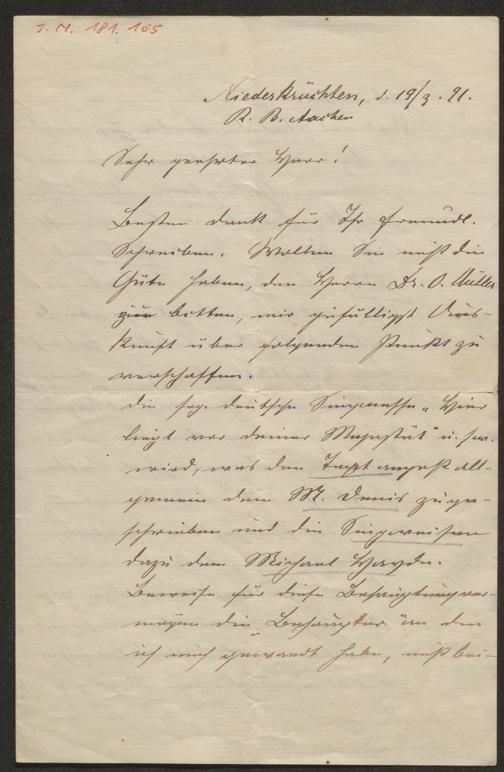 I. N. 181.165
Niederkrüchten, d. 19/3. 91.
R. B. Aachen
Sehr geehrter Herr!
Besten Dank für Ihr freundl.
Schreiben. Wollen Sie nicht die
Güte haben, den Herrn Dr. O. Müller
zu bitten, mir gefälligst Aus-
kunft über folgenden Punkt zu
verschaffen.
Die sog. deutsche Singmesse „Hier
liegt vor deiner Majestät" u.s.w.
wird, was den Text angeht all-
gemein dem M. Denis zuge-
schrieben und die Singweisen
dazu dem Michael Haydn.
Beweise für diese Behauptung ver-
mögen die Behaupter an die
ich mich gewandt habe, nicht bei-